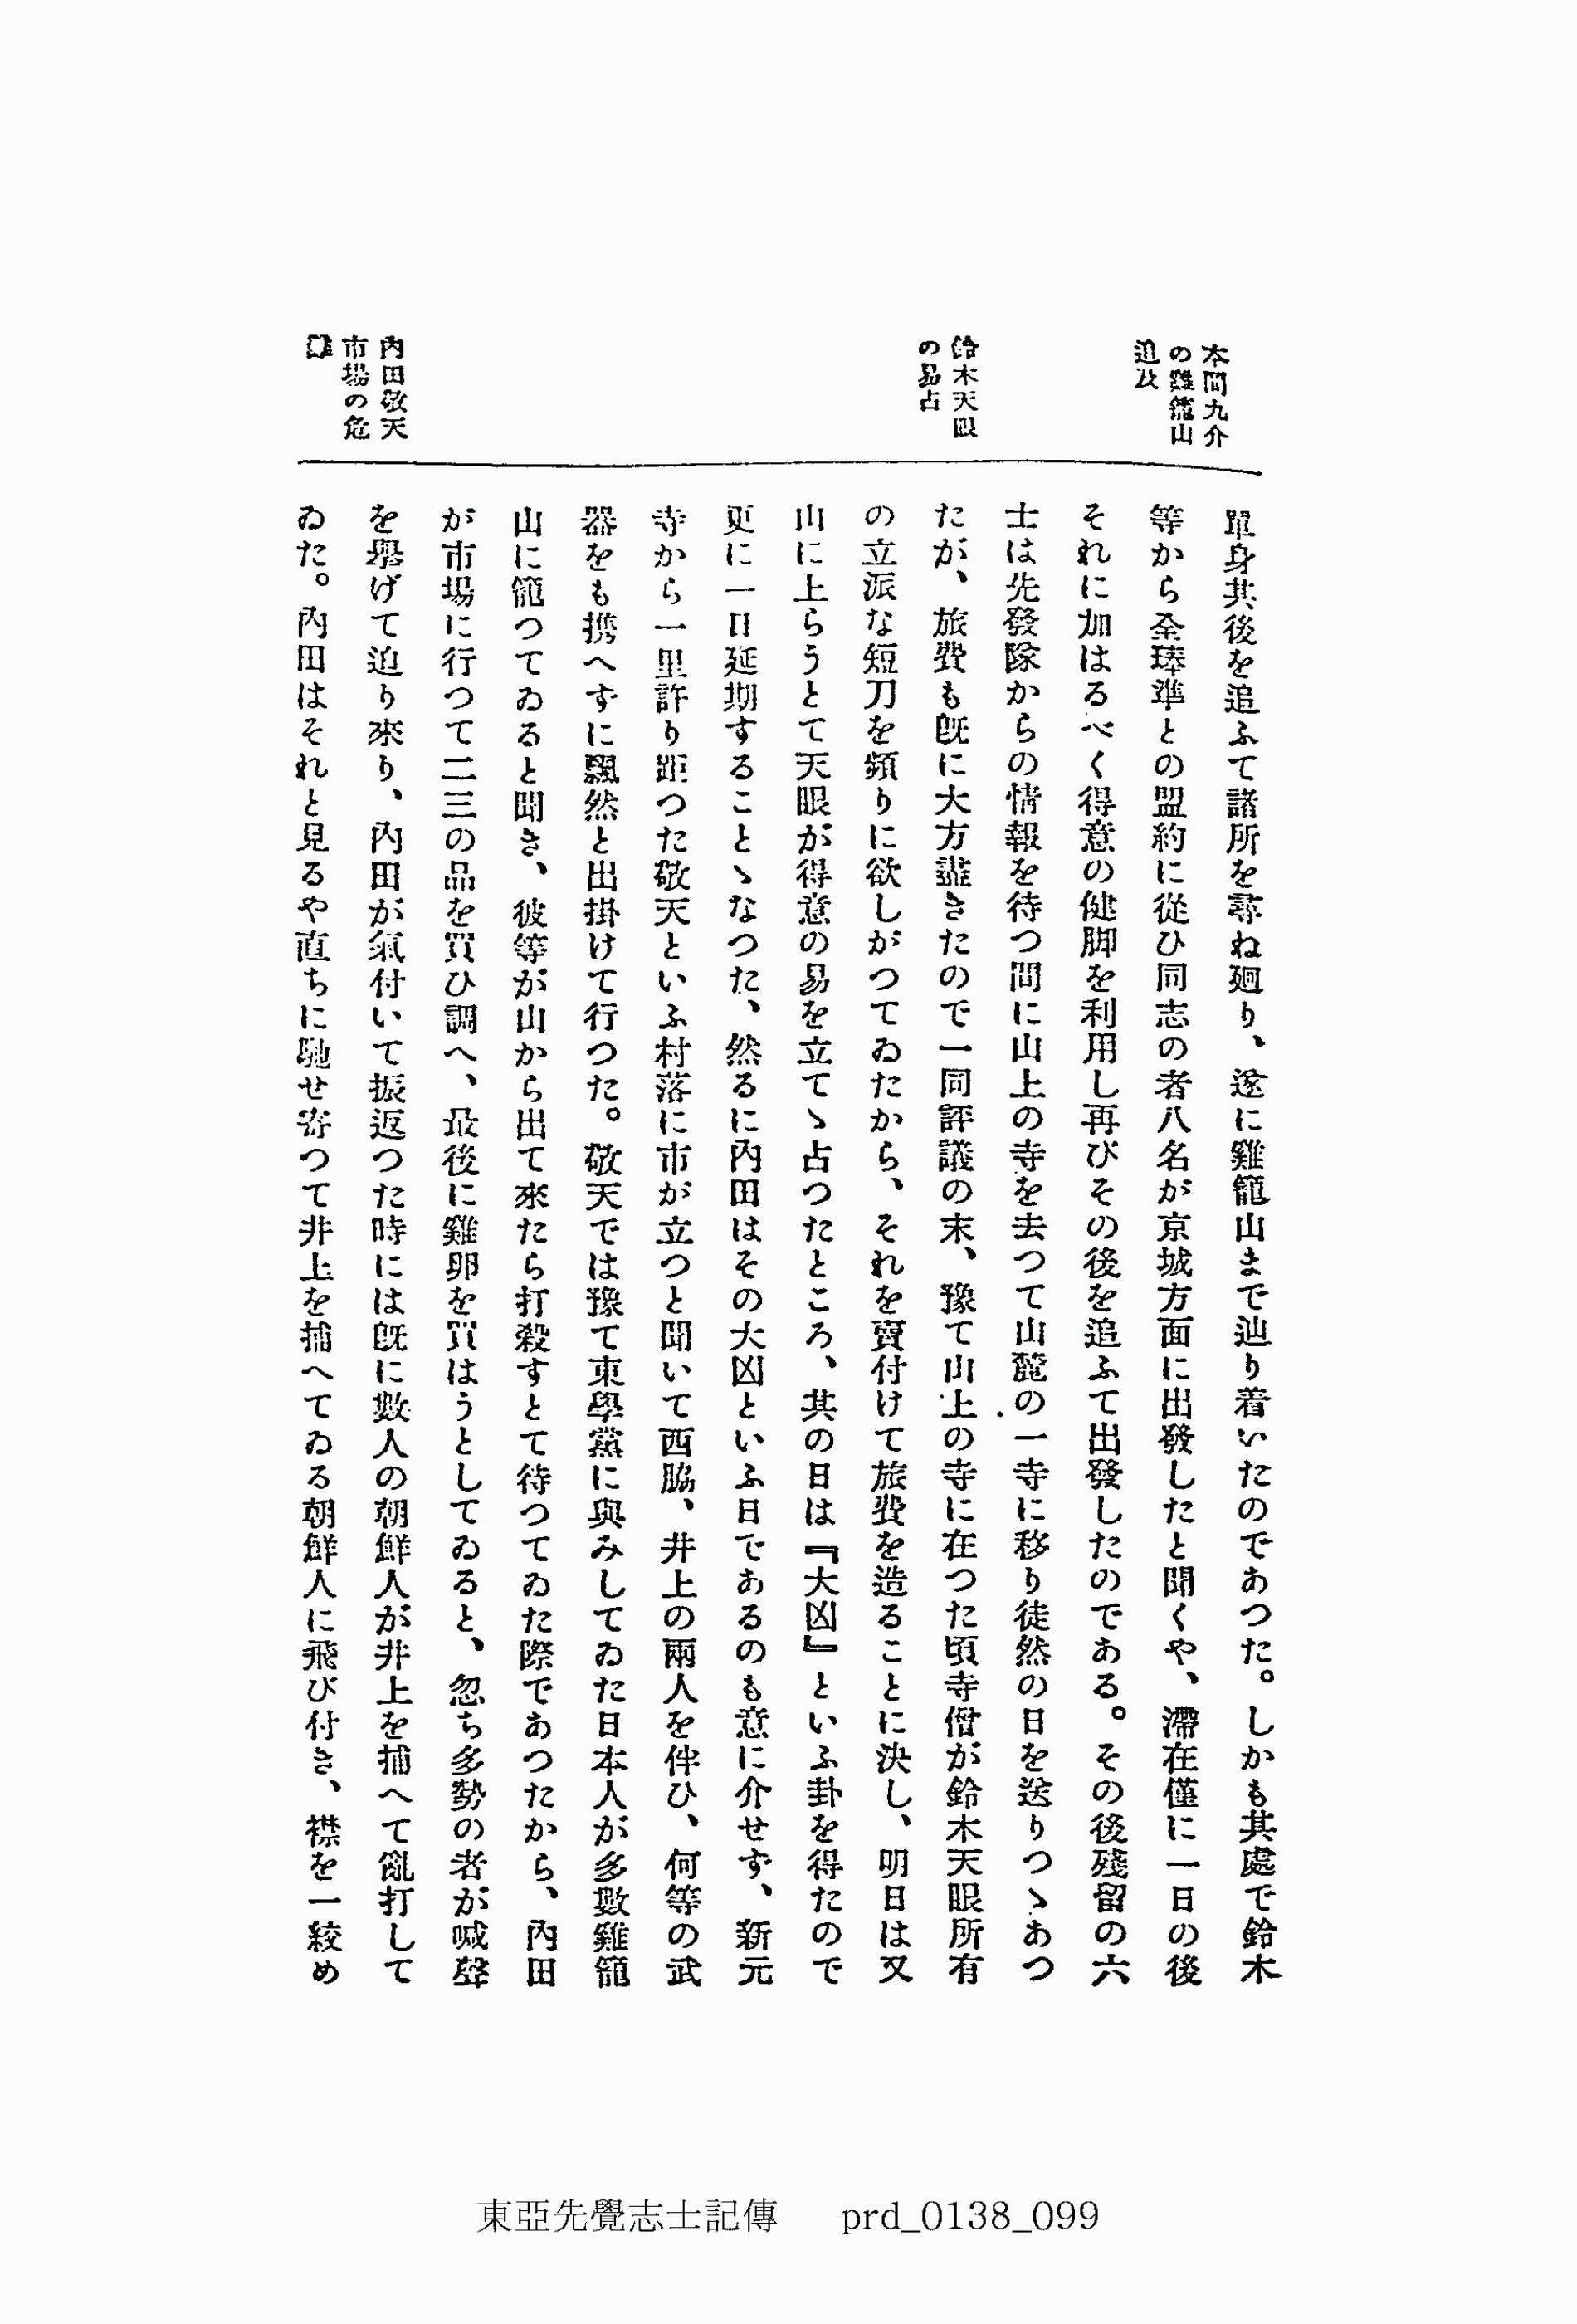 本間九介
の雞籠山
追及
單身其後を追ふて諸所を尋ね廻り、遂に雞籠山まで辿り着いたのであつた。しかも其處で鈴木
等から全琫準との盟約に從ひ同志の者八名が京城方面に出發したと聞くや、滯在僅に一日の後
それに加はるべく得意の健脚を利用し再びその後を追ふて出發したのである。その後殘留の六
士は先發隊からの情報を待つ間に山上の寺を去つて山麓の一寺に移り徒然の日を送りつゝあつ
鈴木天眼
の易占
たが、旅費も既に大方盡きたので一同評議の末、豫て山上の寺に在つた頃寺僧が鈴木天眼所有
の立派な短刀を頻りに欲しがつてゐたから、それを賣付けて旅費を造ることに決し、明日は又
山に上らうとて天眼が得意の易を立てゝ占つたところ、其の日は『大凶』といふ卦を得たので
更に一日延期することゝなつた、然るに內田はその大凶といふ日であるのも意に介せず、新元
寺から一里許り距つた敬天といふ村落に市が立つと聞いて西脇、井上の兩人を伴ひ、何等の武
器をも携へずに飄然と出掛けて行つた。敬天では豫て東學黨に與みしてゐた日本人が多數雞籠
山に籠つてゐると聞き、彼等が山から出て來たら打殺すとて待つてゐた際であつたから、內田
が市場に行つて二三の品を買ひ調へ、最後に雞卵を買はうとしてゐると、忽ち多勢の者が喊聲
內田敬天
市場の危
を擧げて迫り來り、內田が氣付いて振返つた時には既に數人の朝鮮人が井上を捕へて亂打して
ゐた。內田はそれと見るや直ちに馳せ寄つて井上を捕へてゐる朝鮮人に飛び付き、襟を一絞め
東亞先覺志士記傳 prd_0138_099